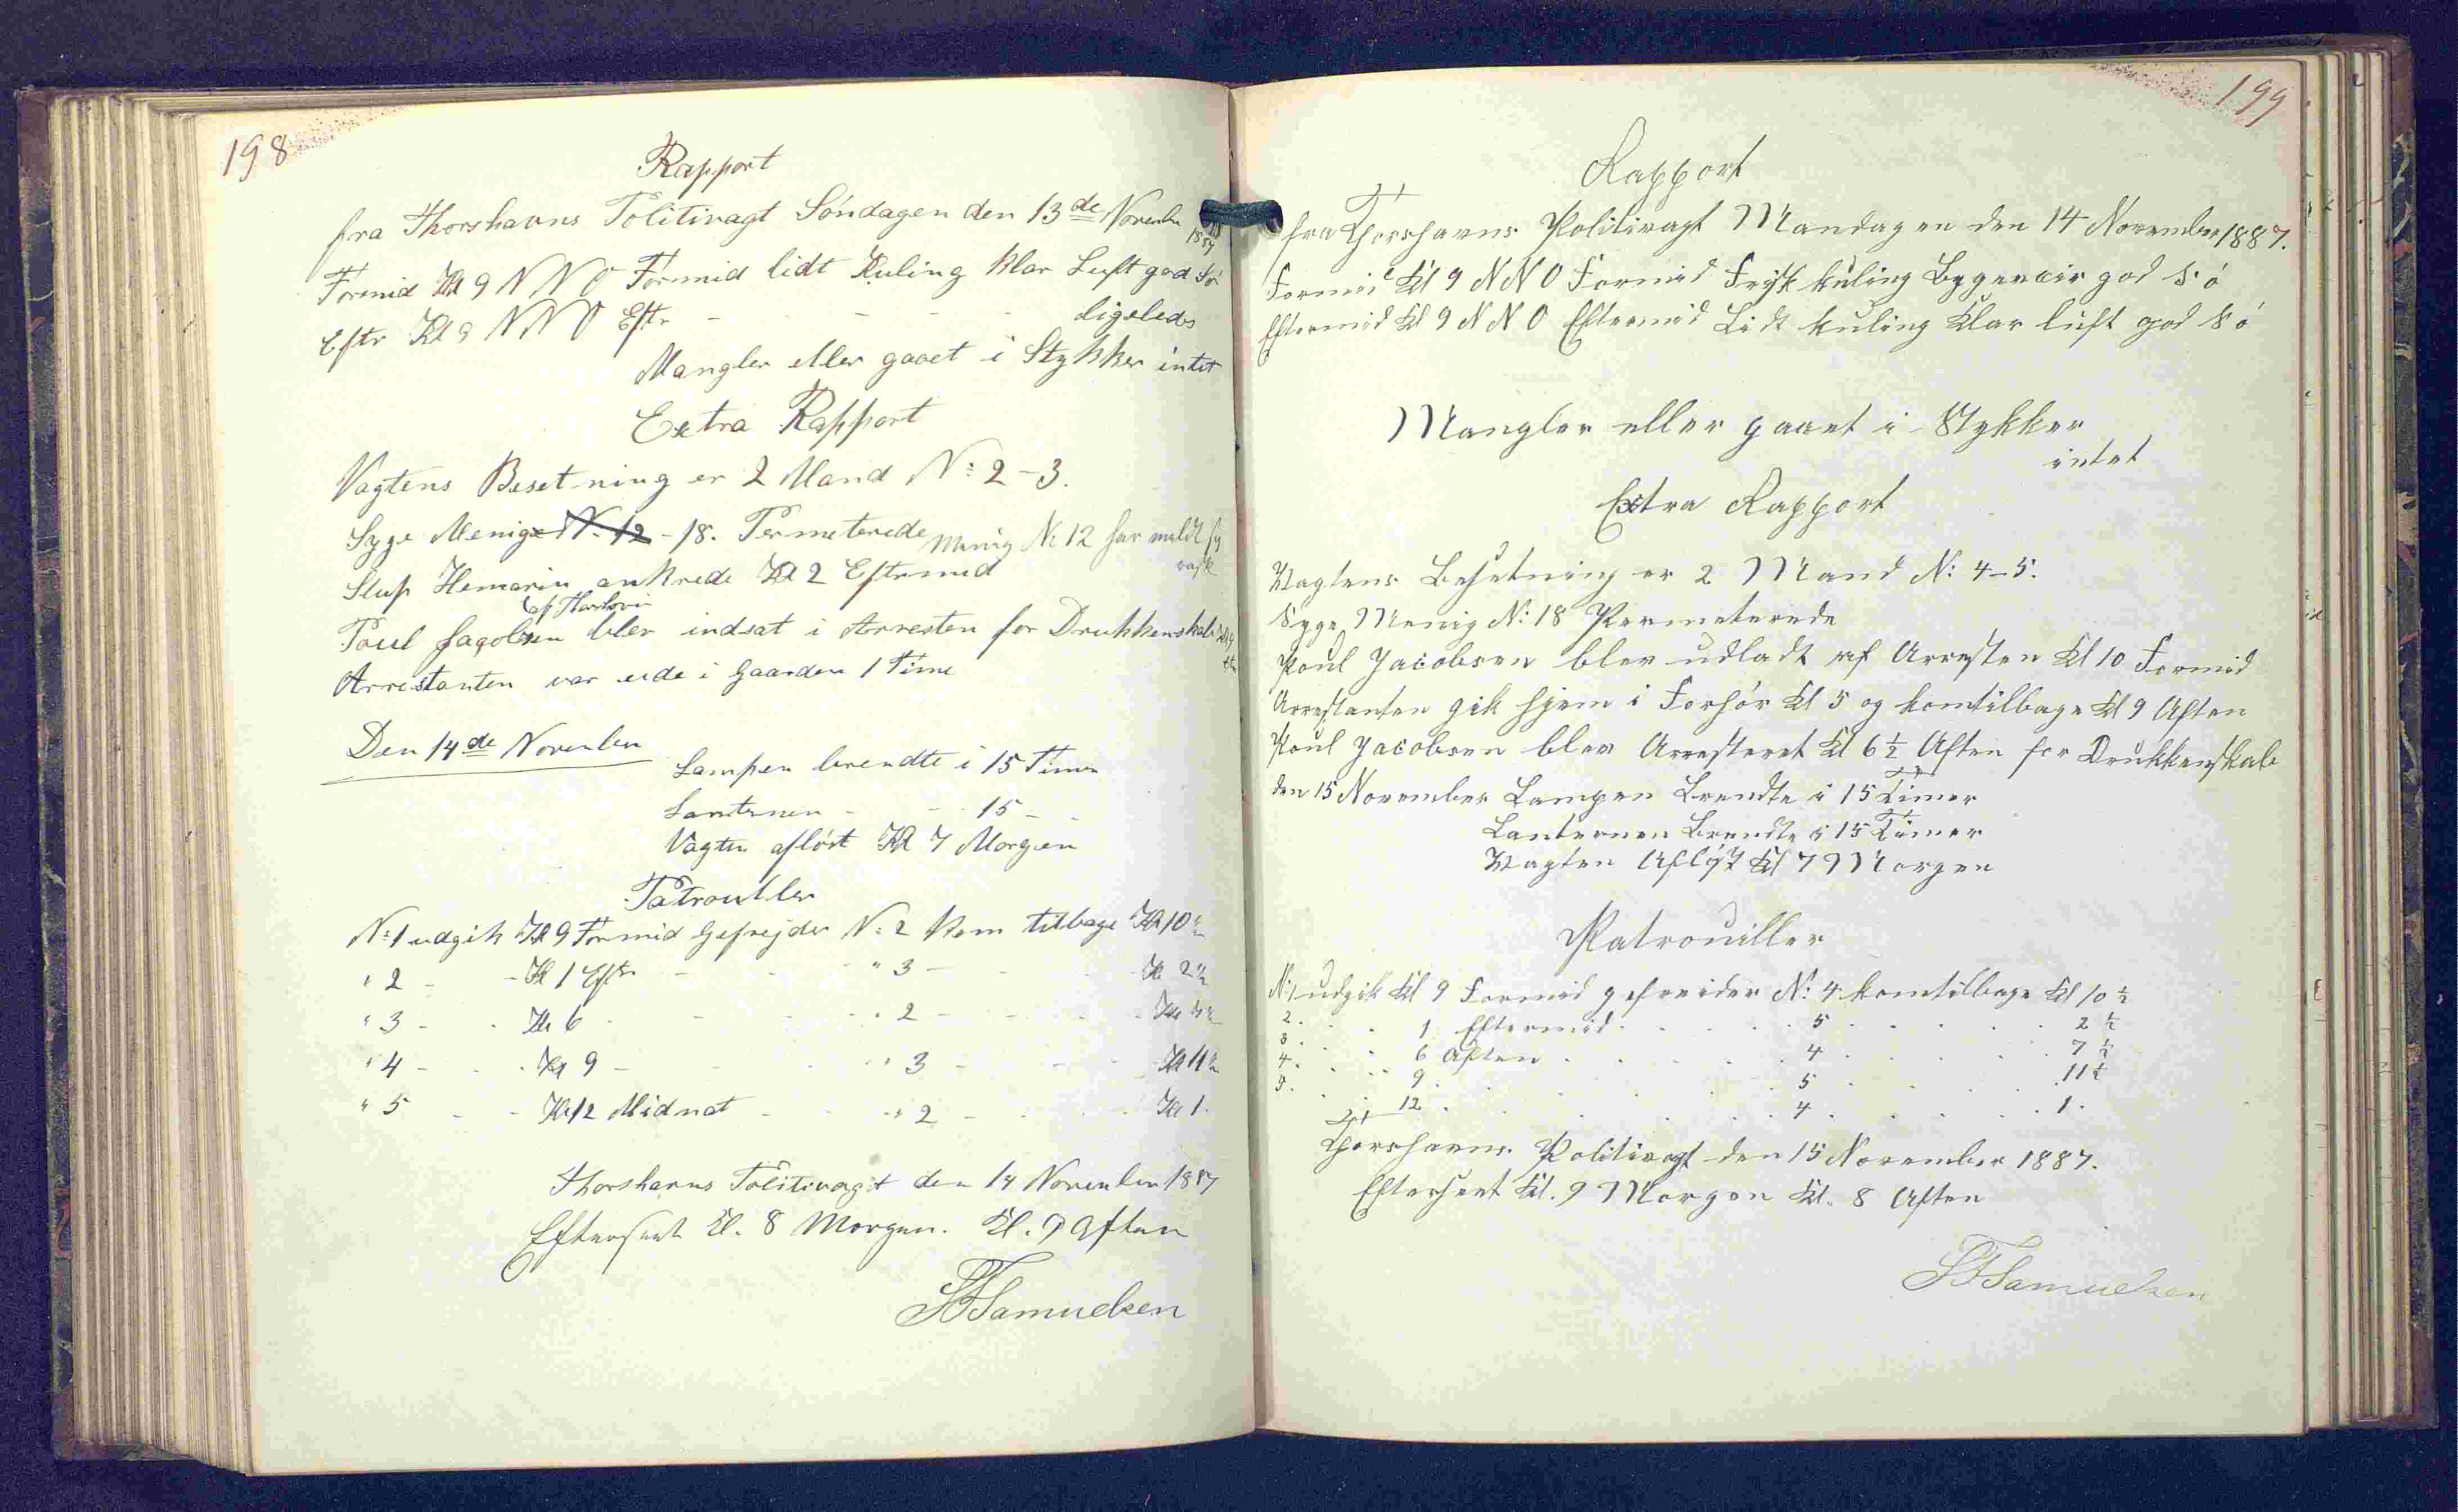 198
Rapport
fra Thorshavns Politivagt Søndagen den 13de Novembr 1887
Formid Kl 9 N N O Formid lidt Kuling klar Luft god Sø
Eftr Kl 9 N N O Eftr - - - - ligeledes
Mangler eller gaaet i Stykker intet
Extra Rapport
Vagtens Besetning er 2 Mand No: 2-3.
Syge Menige N. 12 - 18. Permeterede Menig No 12 har meldt sig rask
Slup Hemarin ankrede Kl 2 Eftermid
Poul Jagobsen blev indsat i Arresten for Drukkenskab
Arrestanten var ude i Gaarden 1 Time
Den 14de November
Lampen brendte i 15 Timer
Lanternen - - 15 -
Vagten afløst Kl 7 Morgen
Patrouller
No: 1 udgik Kl 9 Formid Gefrejder No: 2 kom tilbage Kl 10½
" 2 - - Kl 1 Eftr - - " 3 - - - Kl 2½
" 3 - - Kl 6 - - - " 2 - - - Kl 7½
" 4 - - Kl 9 - - - " 3 - - - Kl 11½
" 5 - - Kl 12 Midnat - - " 2 - - - Kl 1.
Thorshavns Politivagt den 14 November 1887
Efterseet Kl. 8 Morgen. Kl. 9 Aften
Samuelsen
199
Rapport
fra Thorshavns Politivagt Mandagen den 14 November 1887.
Formid Kl 9 N N O Formid Frisk kuling Bygeveir god Sø
Eftermid Kl 9 N N O Eftermid Lidt kuling Klar luft god Sø
Mangler eller gaaet i Stykker
intet
Extra Rapport
Vagtens Besetning er 2 Mand No: 4-5.
Syge Menig No: 18 Permeterede
Poul Jacobsen blev udladt af Arresten Kl 10 Formid
Arrestanten gik hjem i Forhør Kl 5 og komtilbage Kl 9 Aften
Poul Jacobsen blev Arresteret Kl 6½ Aften for Drukkenskab
den 15 November Lampen Brendte i 15 Timer
Lanternen Brendte i 15 Timer
Vagten Afløst Kl 7 Morgen
Patrouiller
No: 1 udgik Kl 9 Formid gefreider No: 4 komtilbage Kl 10½
2. . . 1 Eftermid . . . . 5 . . . . 2½
3. . . 6 Aften . . . . 4 . . . . 7½
4. . . 9 . . . . 5 . . . . 11½
5. . . 12 . . . . 4 . . . . 1.
Thorshavns Politivagt den 15 November 1887.
Efterseet Kl. 9 Morgen Kl. 8 Aften
Samuelsen